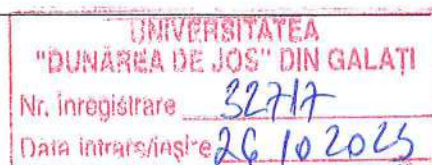 UNIVERSITATEA
"DUNĂREA DE JOS" DIN GALAȚI
Nr. înregistrare 32717
Data intrare/ieșire 26 10 2025